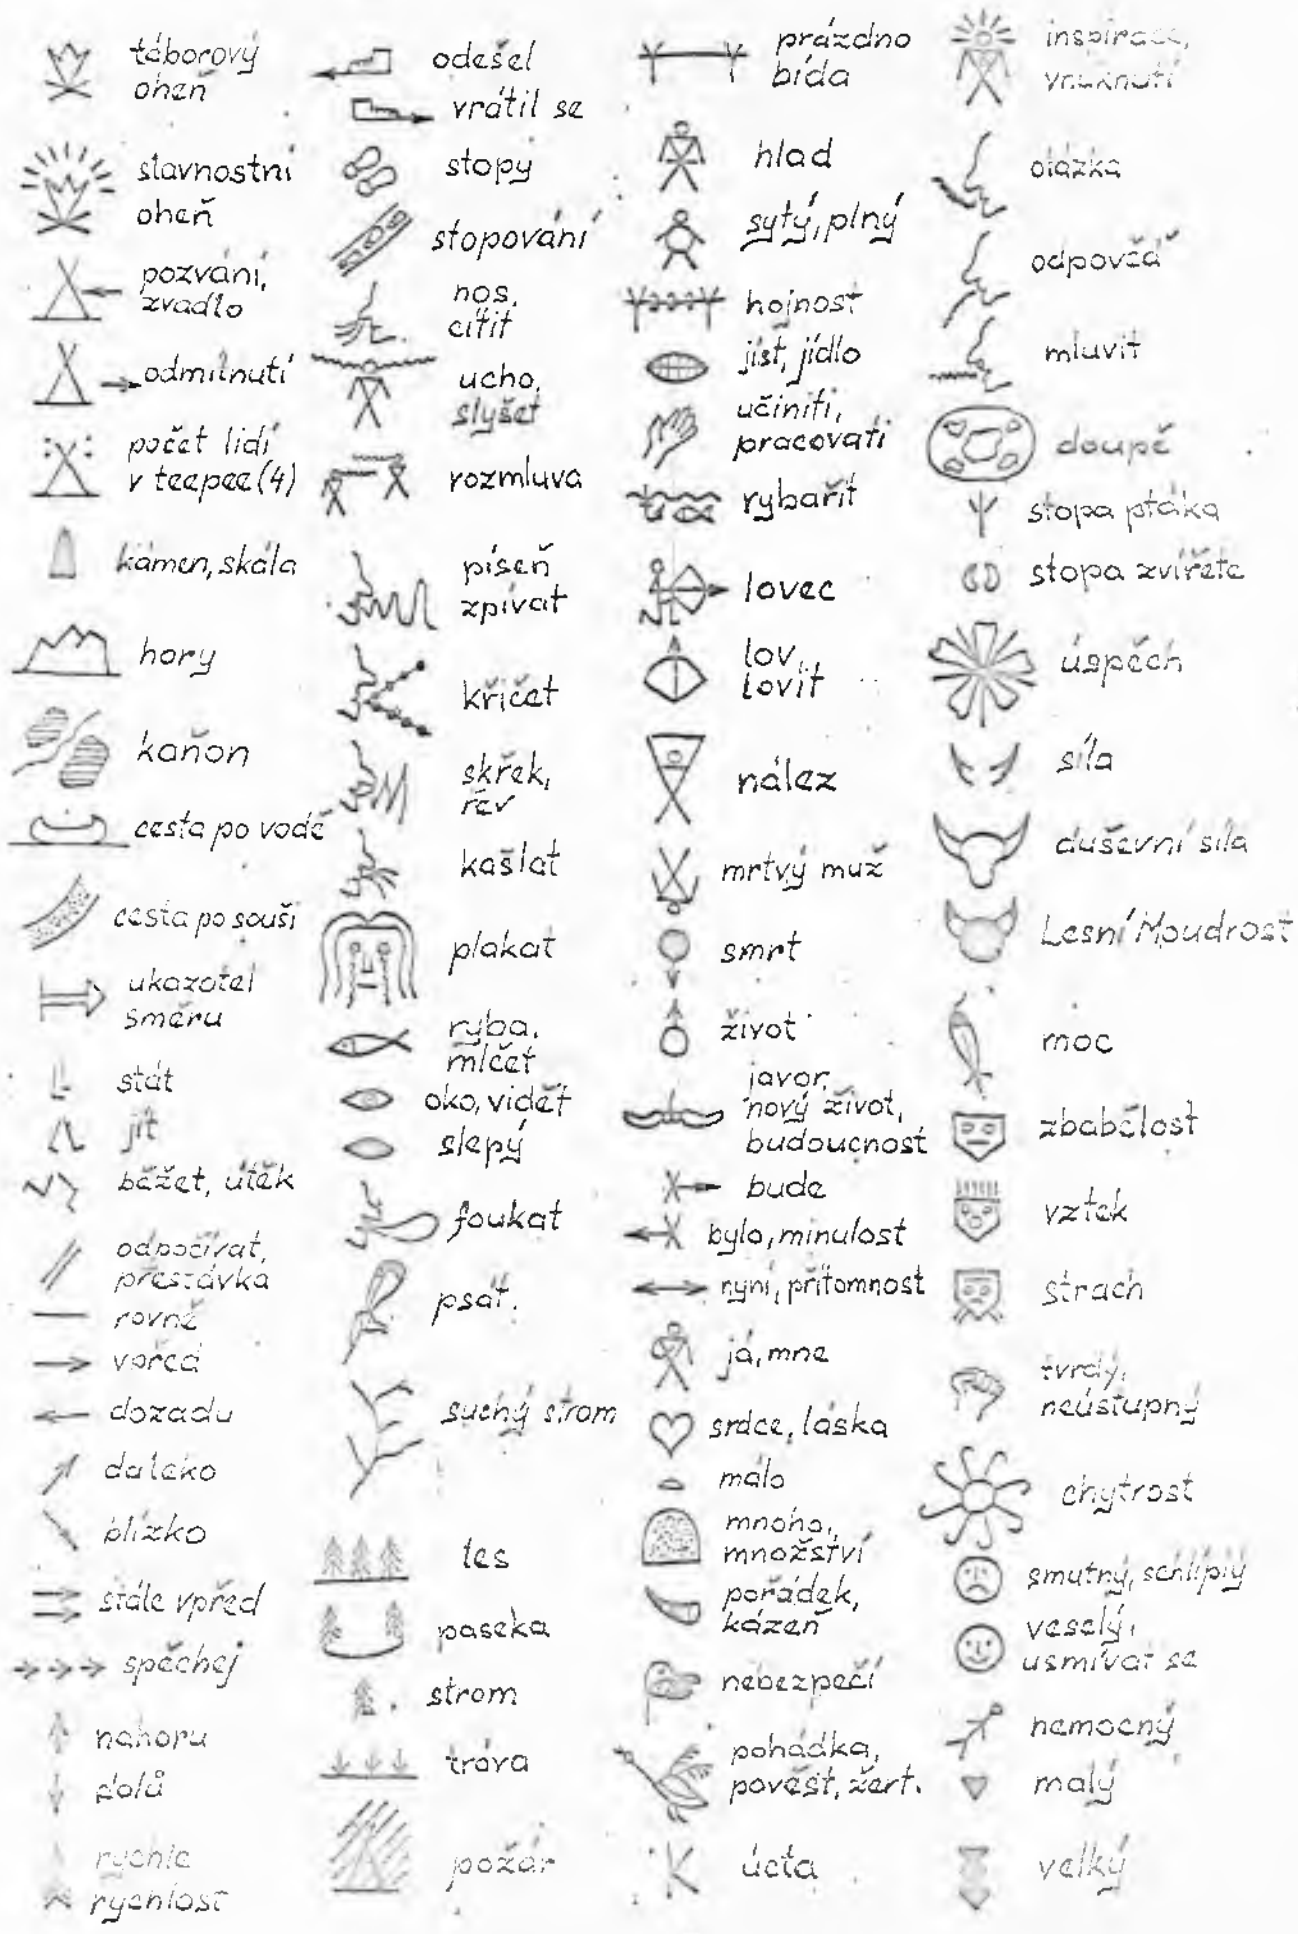 táborový
oheň
slavnostní
oheň
pozvání,
zvadlo
odmítnutí
počet lidí
v teepee (4)
kámen, skála
hory
kaňon
cesta po vodě
cesta po souši
ukazatel
směru
stát
jít
běžet, útěk
odpočívat,
přestávka
rovně
vpřed
dozadu
daleko
blízko
stále vpřed
spěchej
nahoru
dolů
rychle
rychlost
odešel
vrátil se
stopy
stopování
nos,
cítit
ucho,
slyšet
rozmluva
píseň
zpívat
křičet
skřek,
řev
kašlat
plakat
ryba,
mlčet
oko, vidět
slepý
foukat
psát.
suchý strom
les
paseka
strom
tráva
požár
prázdno
bída
hlad
sytý, plný
hojnost
jíst, jídlo
učiniti,
pracovati
rybařit
lovec
lov,
lovit
nález
mrtvý muž
smrt
život
javor,
nový život,
budoucnost
bude
bylo, minulost
nyní, přítomnost
já, mne
srdce, láska
málo
mnoho,
množství
pořádek,
kázeň
nebezpečí
pohádka,
pověst, žert.
úcta
inspirace,
vnuknutí
otázka
odpověď
mluvit
doupě
stopa ptáka
stopa zvířete
úspěch
síla
duševní síla
Lesní Moudrost
moc
zbabělost
vztek
strach
tvrdý,
neústupný
chytrost
smutný, schlíplý
veselý,
usmívat se
nemocný
malý
velký